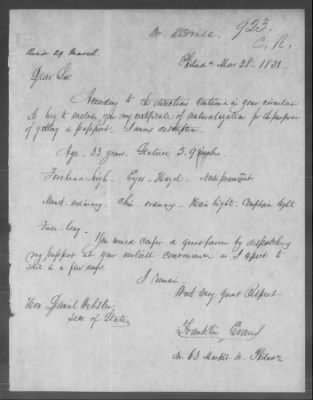 923.
C. R.
Philada Mar 28 - 1851
Recd 29 March
Dear Sir
According to the directions contained in your circular
I beg to enclose you my certificate of naturalization for the purpose
of getting a passport. I annex description
Age - 33 years. Stature 5. 9 inches.
Forehead high - Eyes - Hazel Nose prominent
Mouth ordinary - Chin ordinary - Hair light - Complexion light
Face long -
You would confer a great favor by dispatching
my passport at your earliest convenience as I expect to
sail in a few days.
I remain
With Very Great Respect
Franklin Evans
No. 63 Market St. Philada
Hon Daniel Webster
Secr of State